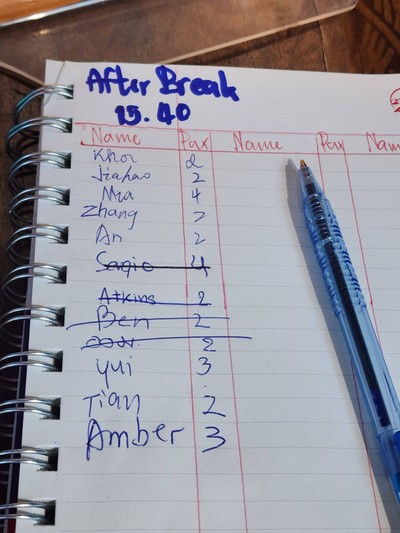 After Break
15.40
Name Pax Name Pax Nam
Khor 2
Jiahao 2
Mia 4
Zhang 2
An 2
4
Atkins 2
Ben 2
2
yui 3
Tian 2
Amber 3